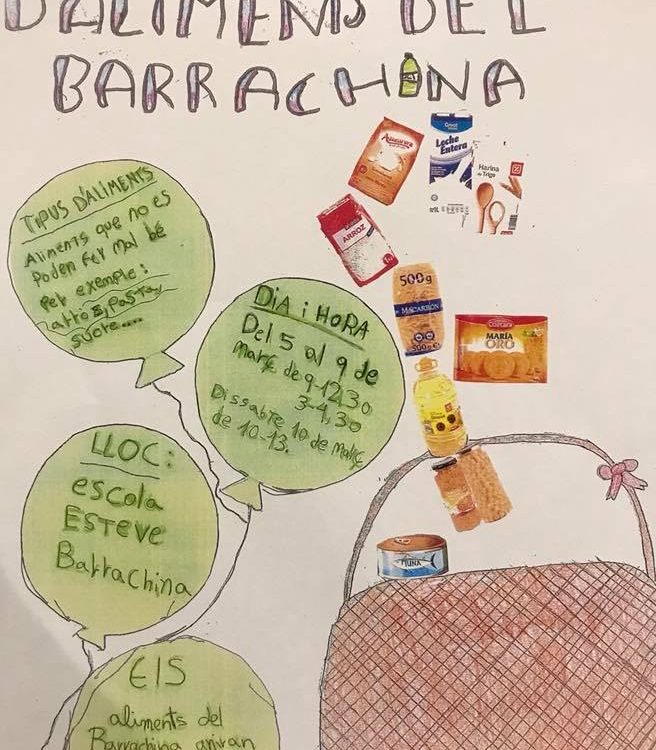 D'ALIMENTS DEL
BARRACHINA
TIPUS D'ALIMENTS
Aliments que no es
Poden fer mal bé
Per exemple:
arròs, Pasta,
sucre....
DIA i HORA
Del 5 al 9 de
març de 9-12,30
3-4,30
Dissabte 10 de març
de 10-13.
LLOC:
escola
ESTEVE
BarraChina
ElS
aliments del
Barrachina aniran
Azúcar
Leche
Entera
Harina
de Trigo
DIA
ARROZ
500g
MACARRÓN
500g e
CUÉTARA
MARÍA
ORO
TUNA